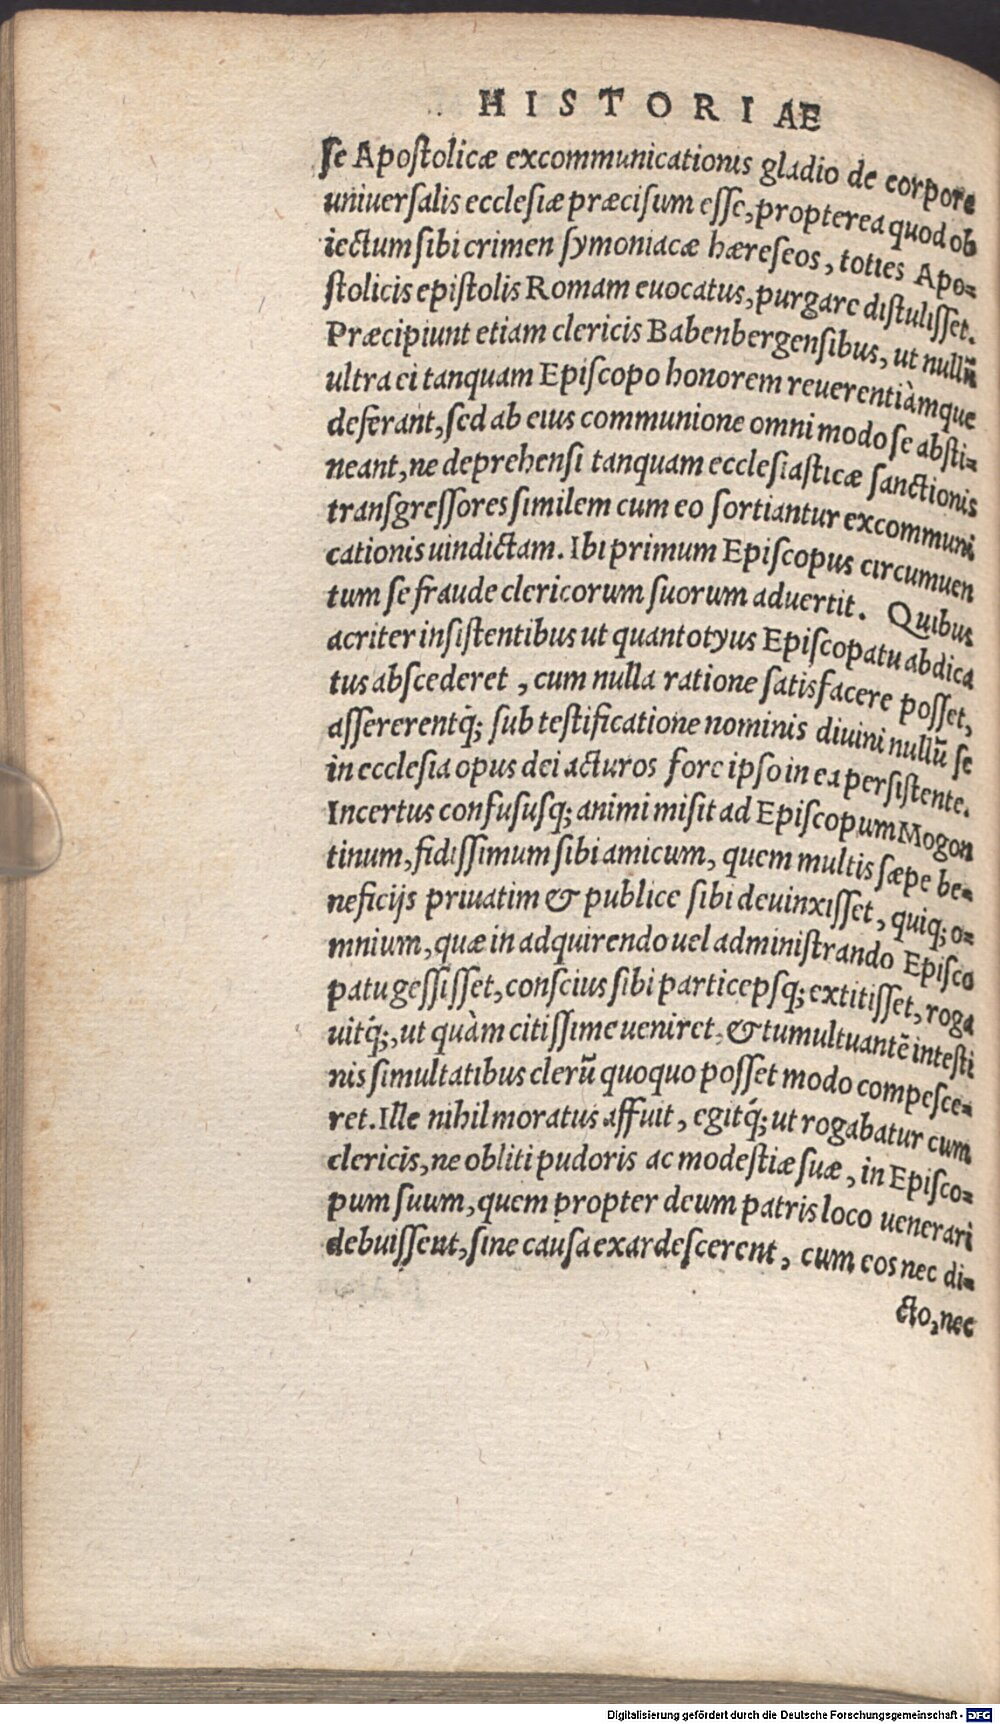 HISTORIAE
se Apostolicæ excommunicationis gladio de corpore
uniuersalis ecclesiæ præcisum esse, propterea quod ob
iectum sibi crimen symoniacæ hæreseos, toties Apo=
stolicis epistolis Romam euocatus, purgare distulisset.
Præcipiunt etiam clericis Babenbergensibus, ut nullũ
ultra ei tanquam Episcopo honorem reuerentiàmque
deferant, sed ab eius communione omni modo se absti=
neant, ne deprehensi tanquam ecclesiasticæ sanctionis
transgressores similem cum eo sortiantur excommuni
cationis uindictam. Ibi primum Episcopus circumuen
tum se fraude clericorum suorum aduertit. Quibus
acriter insistentibus ut quantotyus Episcopatu abdica
tus abscederet, cum nulla ratione satisfacere posset,
assererentq́; sub testificatione nominis diuini nullũ se
in ecclesia opus dei acturos fore ipso in ea persistente.
Incertus confususq; animi misit ad Episcopum Mogon
tinum, fidissimum sibi amicum, quem multis sæpe be=
neficijs priuatim & publice sibi deuinxisset, quiq; o=
mnium, quæ in adquirendo uel administrando Episco
patu gessisset, conscius sibi particepsq; extitisset, roga
uitq́;, ut quàm citissime ueniret, & tumultuantẽ intesti
nis simultatibus clerũ quoquo posset modo compesce=
ret. Ille nihil moratus affuit, egitq́; ut rogabatur cum
clericis, ne obliti pudoris ac modestiæ suæ, in Episco=
pum suum, quem propter deum patris loco uenerari
debuissent, sine causa exardescerent, cum eos nec di=
cto, nec
Digitalisierung gefördert durch die Deutsche Forschungsgemeinschaft - DFG